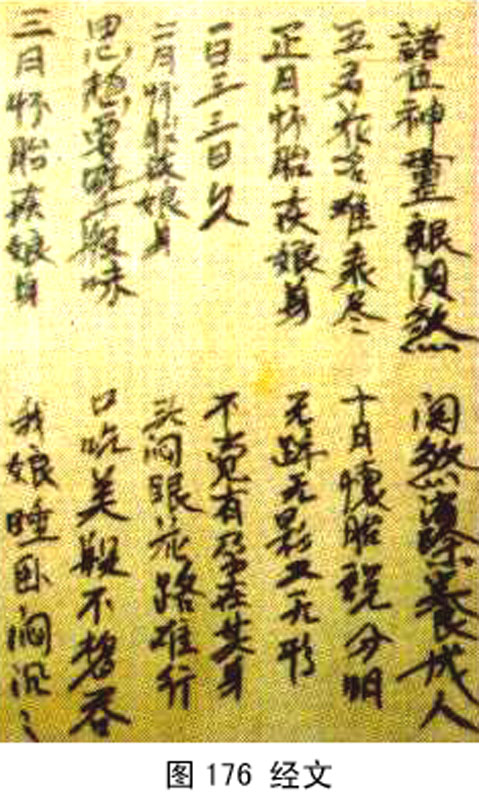 諸位神靈報煞
煞消除養成人
五名花名难表尽
十月懷胎說分明
正月怀胎在娘身
无踪无影又无形
一日三三日久
不觉有孕在其身
二月怀胎在娘身
头闷眼花路难行
思想要般味
口吃美般不想吞
三月怀胎在娘身
我娘睡卧闷沉〻
图 176 经文